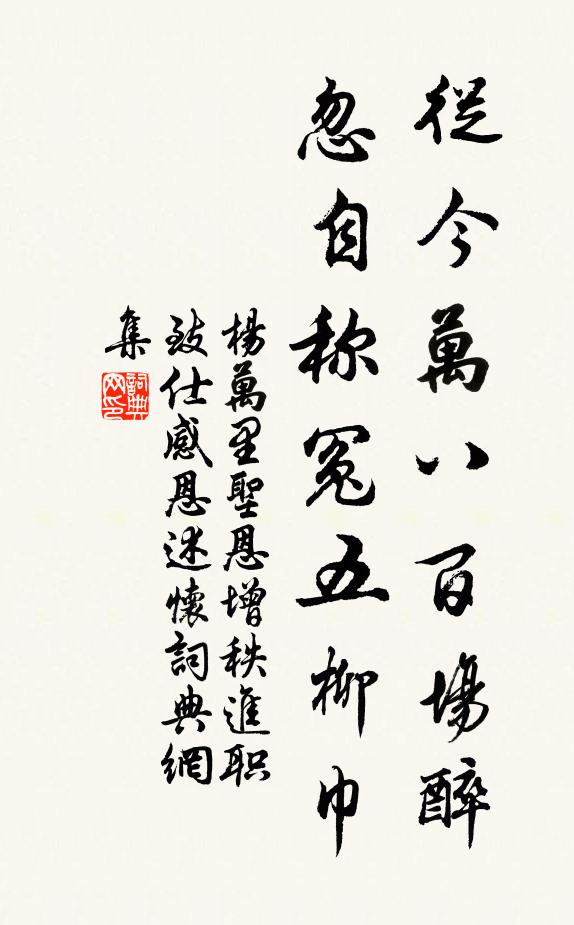 從今萬八百場醉
忽自称冤五柳巾
楊萬里聖恩增秩進职
致仕感恩述懷詞典網
集
詞典
网印